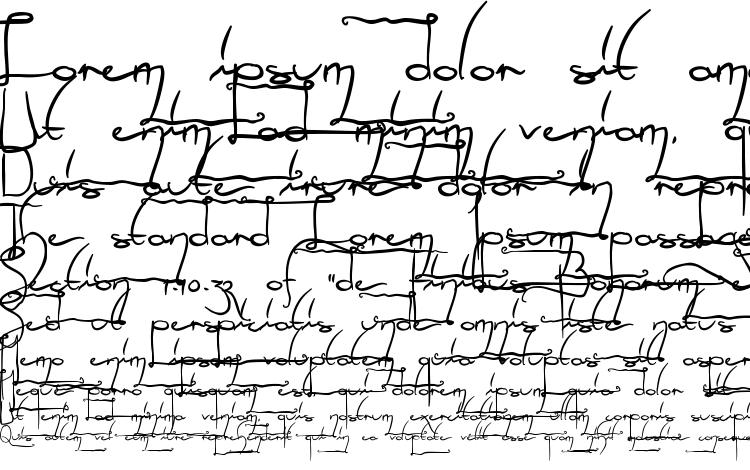 Lorem ipsum dolor sit am
Ut enim ad minim veniam, q
Duis aute irure dolor in repre
The standard Lorem Ipsum passage
Section 1.10.32 of "de Finibus Bonorum e
Sed ut perspiciatis unde omnis iste natus
Nemo enim ipsam voluptatem quia voluptas sit asper
Neque porro quisquam est, qui dolorem ipsum quia dolor
Ut enim ad minima veniam, quis nostrum exercitationem ullam corporis suscipi
Quis autem vel eum iure reprehenderit qui in ea voluptate velit esse quam nihil molestiae consequa